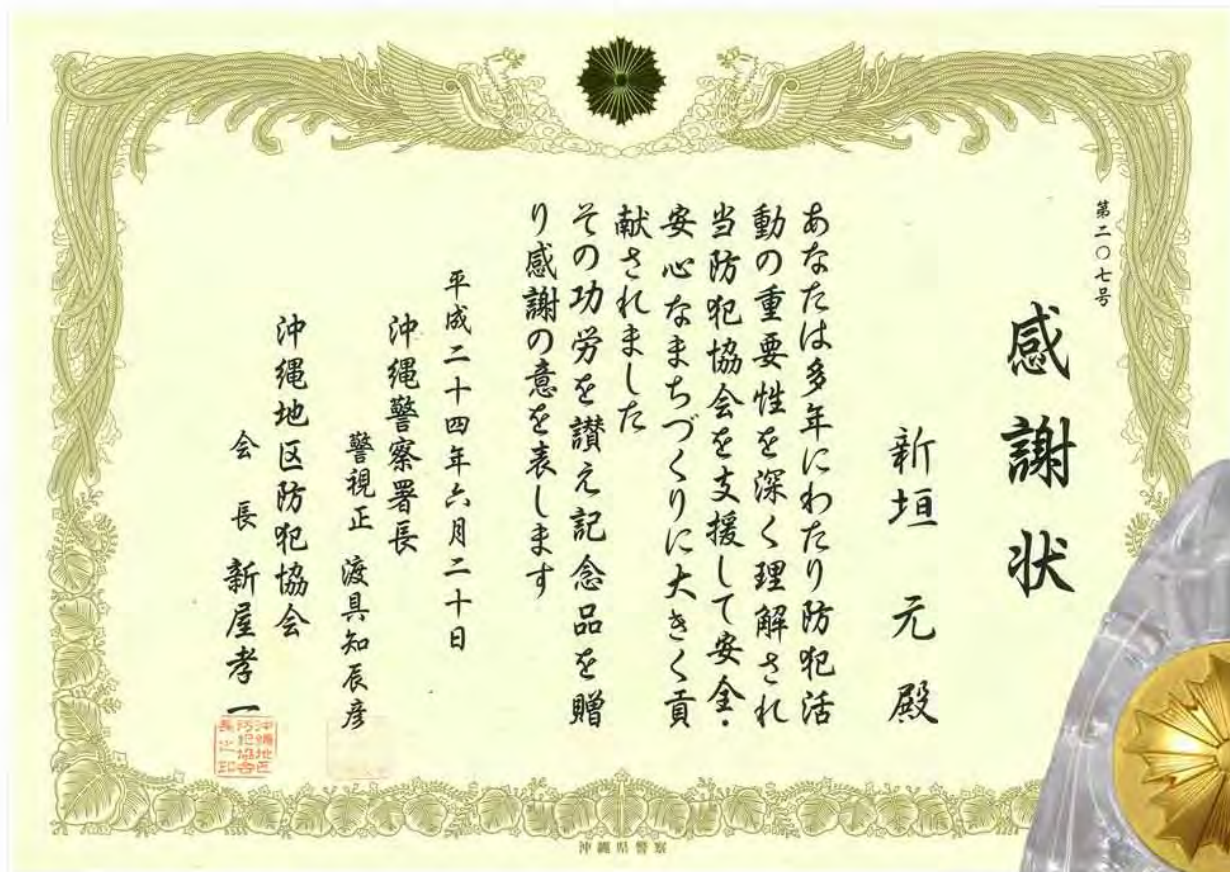 第二〇七号
感謝状
新垣 元 殿
あなたは多年にわたり防犯活
動の重要性を深く理解され
当防犯協会を支援して安全・
安心なまちづくりに大きく貢
献されました
その功労を讃え記念品を贈
り感謝の意を表します
平成二十四年六月二十日
沖縄警察署長
警視正 渡具知辰彦
沖縄地区防犯協会
会長 新屋孝一
沖縄地区
防犯協会
長之印
沖縄県警察